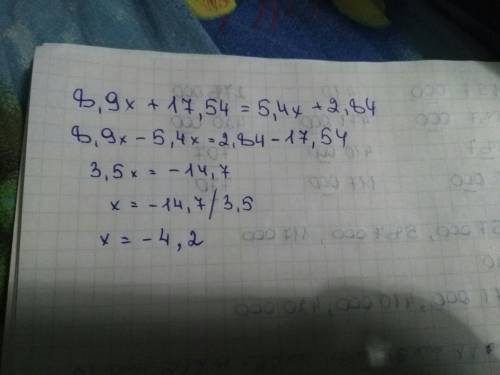 8,9x + 17,54 = 5,4x + 2,84
8,9x - 5,4x = 2,84 - 17,54
3,5x = -14,7
x = -14,7/3,5
x = -4,2